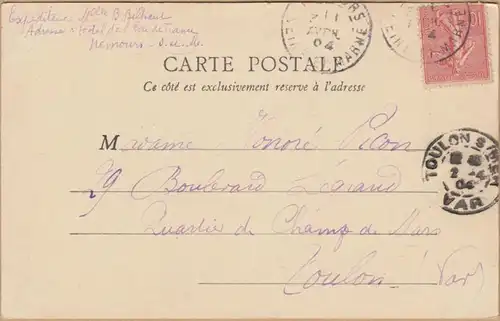 Expéditeur : Melle B. Bethaut
Adresse : Hotel de l'
Nemours . S. et. Me.
AVRIL
04
CARTE POSTALE
Ce côté est exclusivement réservé à l'adresse
Madame Honoré Picon
29 Boulevard
Quartier du Champ de Mars
Toulon Var
TOULON S. MER
04
VAR